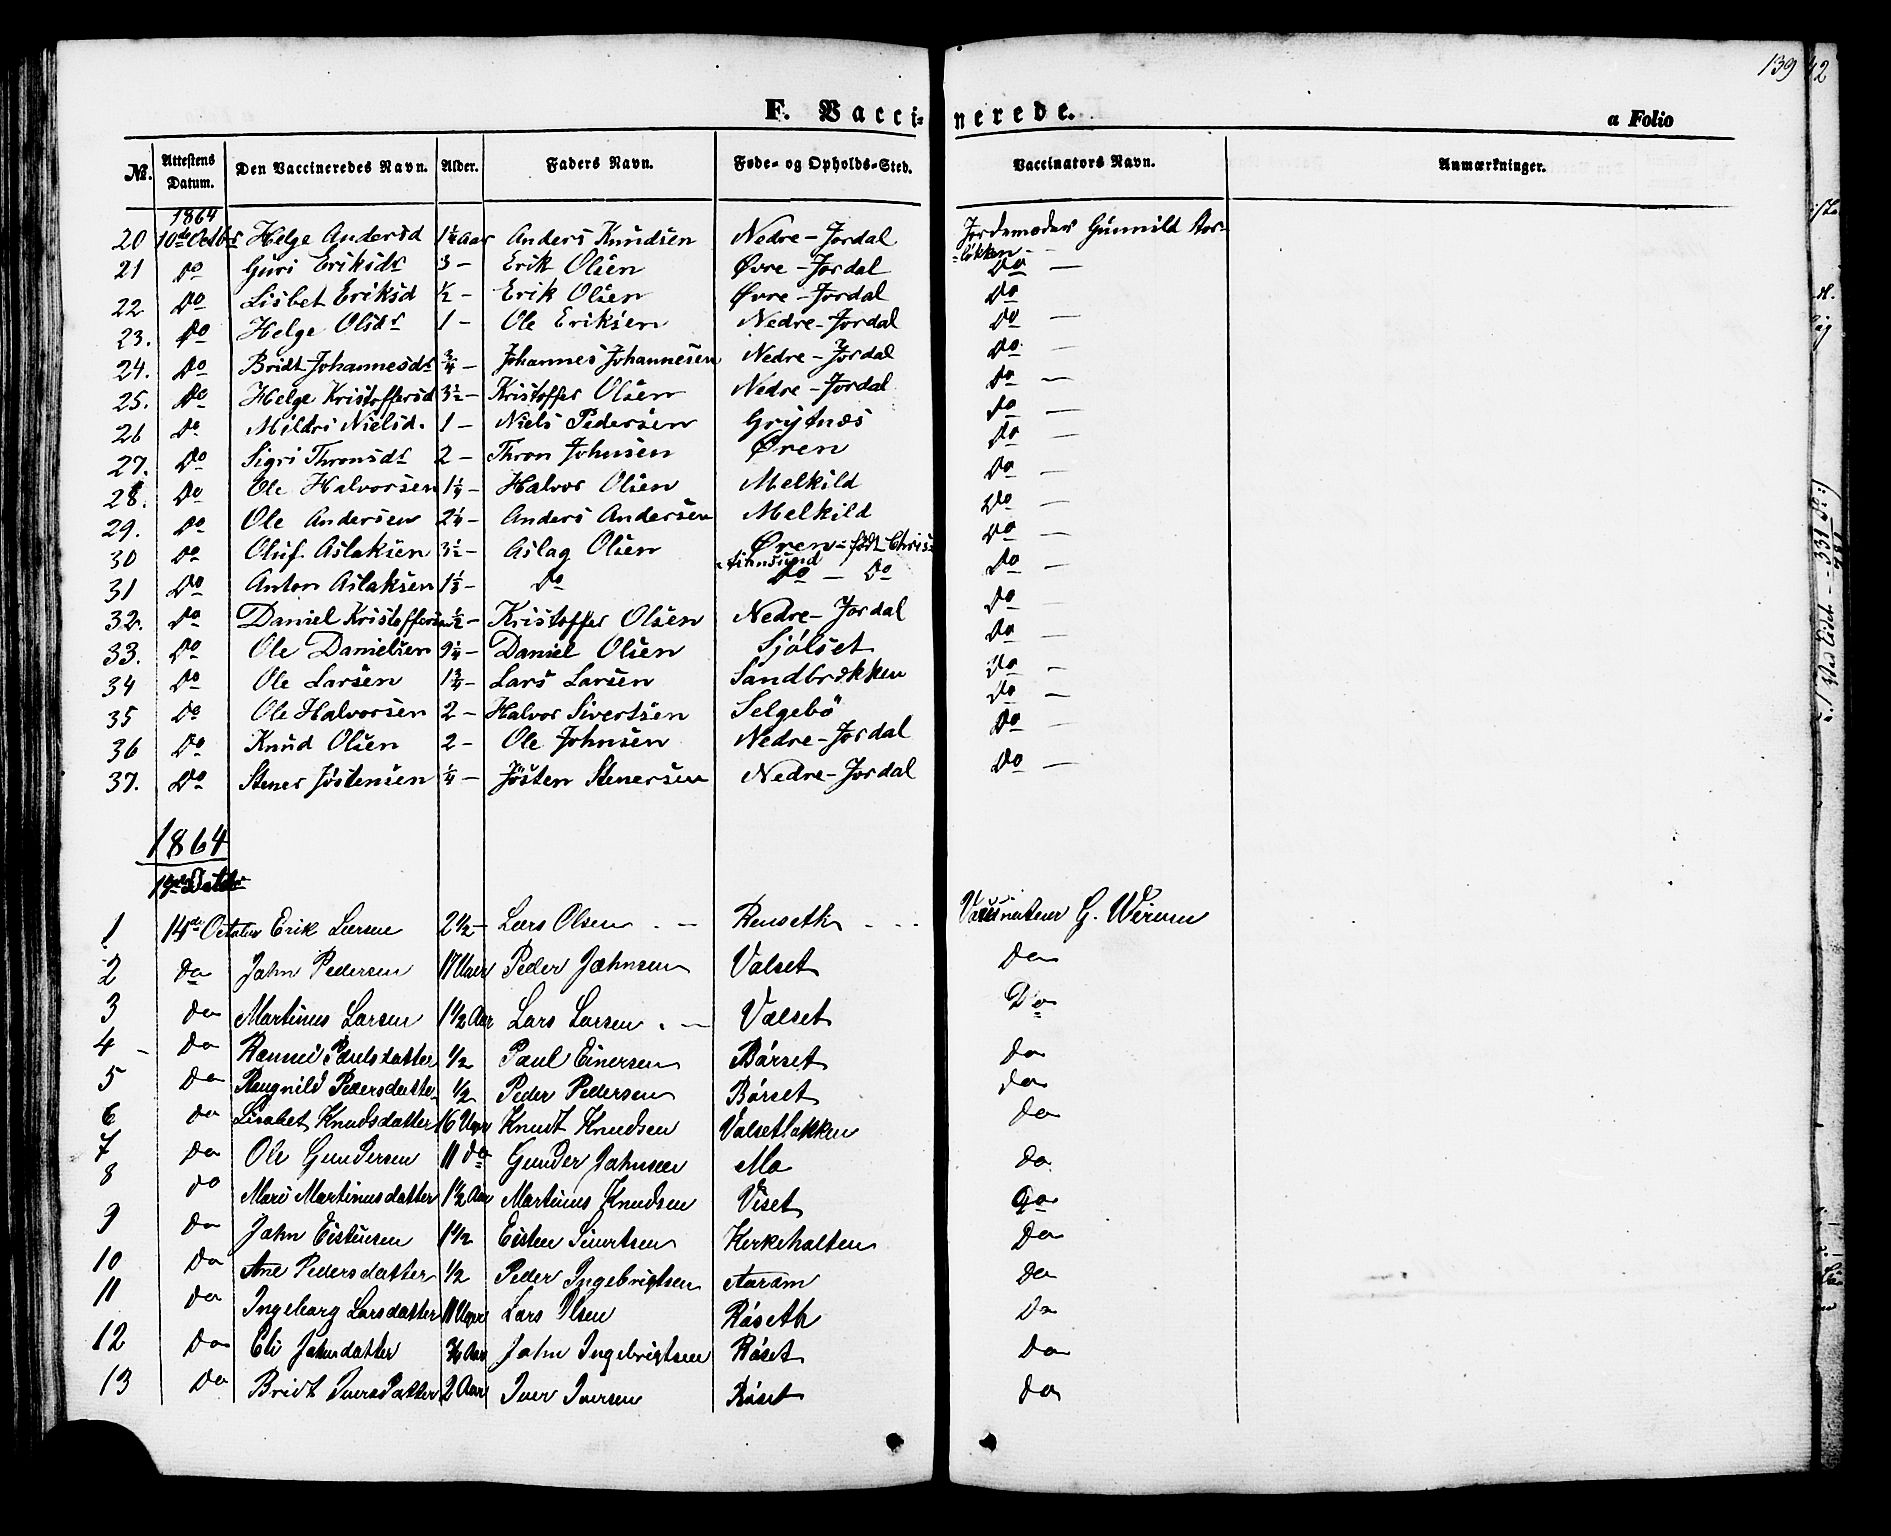 139
F. Vaccinerede.
a Folio
No. Attestens Datum. Den Vaccineredes Navn. Alder. Faders Navn. Føde- og Opholds-Sted. Vaccinators Navn. Anmærkninger.
1864
20 10de Octbr Helge Andersd 1¼ Aar Anders Knudsen Nedre-Jordal Jordemoder Gunnild Aas-
løkken
21 Do Guri Eriksdr 3 - Erik Olsen Øvre-Jordal Do -
22 Do Lisbet Eriksd ½ - Erik Olsen Øvre-Jordal Do
23. Do Helge Olsdr 1 - Ole Eriksen Nedre-Jordal Do -
24. Do Bridt Johannesdr ¾ - Johannes Johannesen Nedre-Jordal Do -
25. Do Helge Kristoffersd 3½ - Kristoffer Olsen Nedre-Jordal Do -
26 Do Mildri Nielsd. 1 - Niels Pedersen Grytnæs Do -
27. Do Sigri Thronsdr 2 - Thron Johnsen Øren Do -
28. Do Ole Halvorsen 1¼ - Halvor Olsen Melkild Do -
29. Do Ole Andersen 2¼ - Anders Andersen Melkild Do -
30 Do Oluf Aslaksen 3½ - Aslag Olsen Øren - født Chris-
tiansund Do -
31 Do Anton Aslaksen 1⅓ - Do Do - Do Do -
32. Do Daniel Kristoffersen ½ - Kristoffer Olsen Nedre-Jordal Do -
33. Do Ole Danielsen 9¼ - Daniel Olsen Sjølset Do -
34 Do Ole Larsen 1¾ - Lars Larsen Sandbrekken Do -
35 Do Ole Halvorsen 2 - Halvor Sivertsen Selgebø Do -
36 Do Knud Olsen 2 - Ole Johnsen Nedre-Jordal Do -
37. Do Stener Jøstensen ¼ - Jøsten Stenersen Nedre-Jordal Do -
1864
1 14de October Erik Larsen 2½ - Lars Olsen - Renseth - Vaccinateur G. Wirum
2 Do John Pedersen 17 Uger Peder Johnsen Valset Do
3 Do Martinus Larsen 1½ Aar Lars Larsen - Valset Do
4 - Do Rannei Paulsdatter ½ Paul Einersen Børset Do
5 Do Rangnild Pedersdatter ½ Peder Pedersen Børset Do
6 Do Lisabet Knudsdatter 16 Uger Knudt Knudsen Valsetløkken Do
7 Do Ole Gundersen 11 Do Gunder Johnsen Mo Do
8 Do Mari Martinusdatter 1½ Aar Martinus Knudsen Viset Do
9 Do John Eistensen 1½ Eisten Sivertsen Kirkeholten Do
10 Do Ane Pedersdatter ½ Peder Ingebrigtsen Aaram Do
11 Do Ingeborg Larsdatter 11 Uger Lars Olsen Røseth Do
12 Do Eli Johnsdatter ¾ Aar John Ingebrigtsen Røset Do
13 Do Bridt Iversdatter 2 Aar Iver Iversen Røset Do